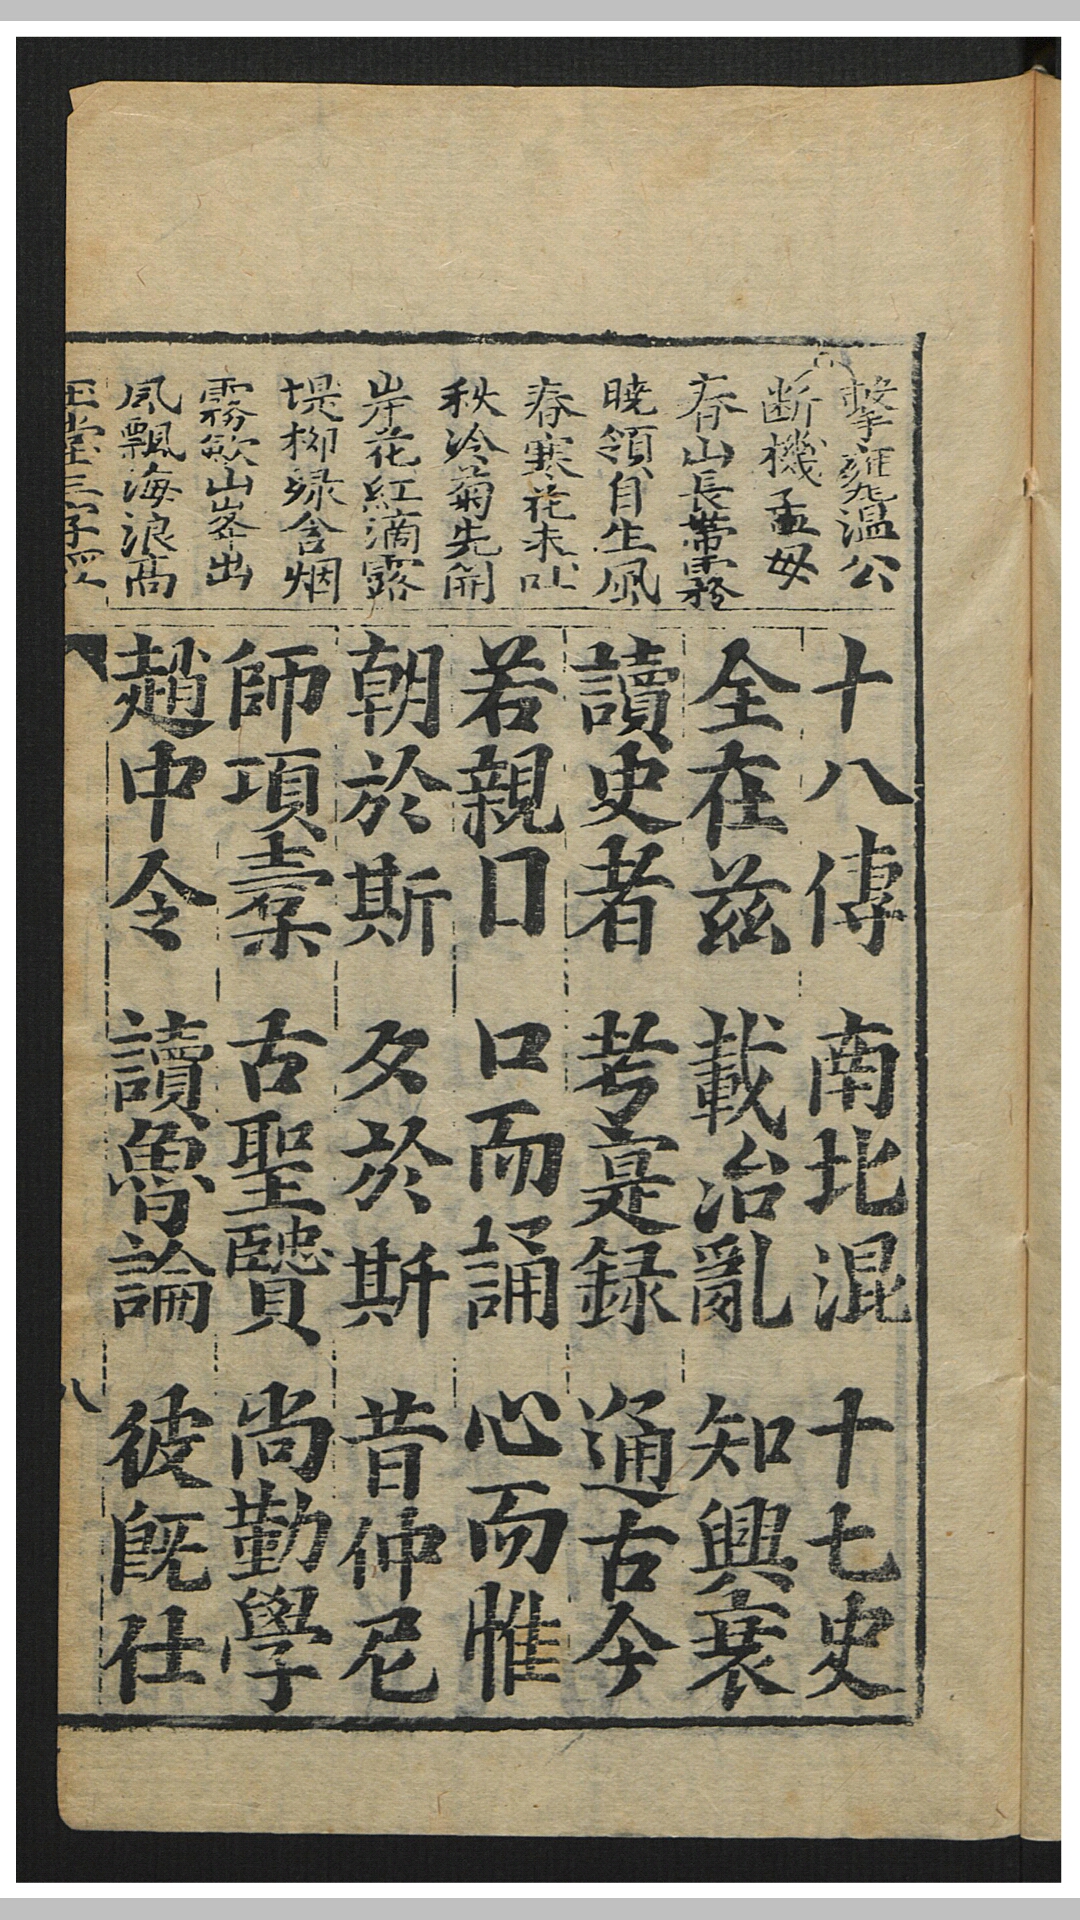 擊甕温公
断機孟母
春山長帶霧
曉領自生風
春寒花未吐
秋冷菊先開
岸花紅滴露
堤柳绿含烟
霧歛山峯出
風飄海浪高
十八傳 南北混 十七史
全在兹 載治亂 知興衰
讀史者 考寔録 通古今
若親目 口而誦 心而惟
朝於斯 夕於斯 昔仲尼
師項橐 古聖贒 尚勤學
趙中令 讀魯論 彼旣仕
玉堂三字經
八